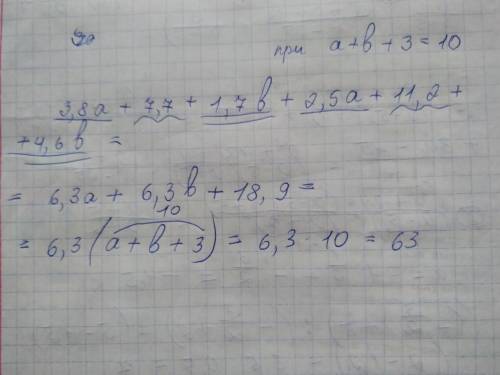 при a+b+3=10
3,8a + 7,7 + 1,7b + 2,5a + 11,2 +
+4,6b =
= 6,3a + 6,3b + 18,9 =
10
= 6,3(a+b+3) = 6,3·10 = 63